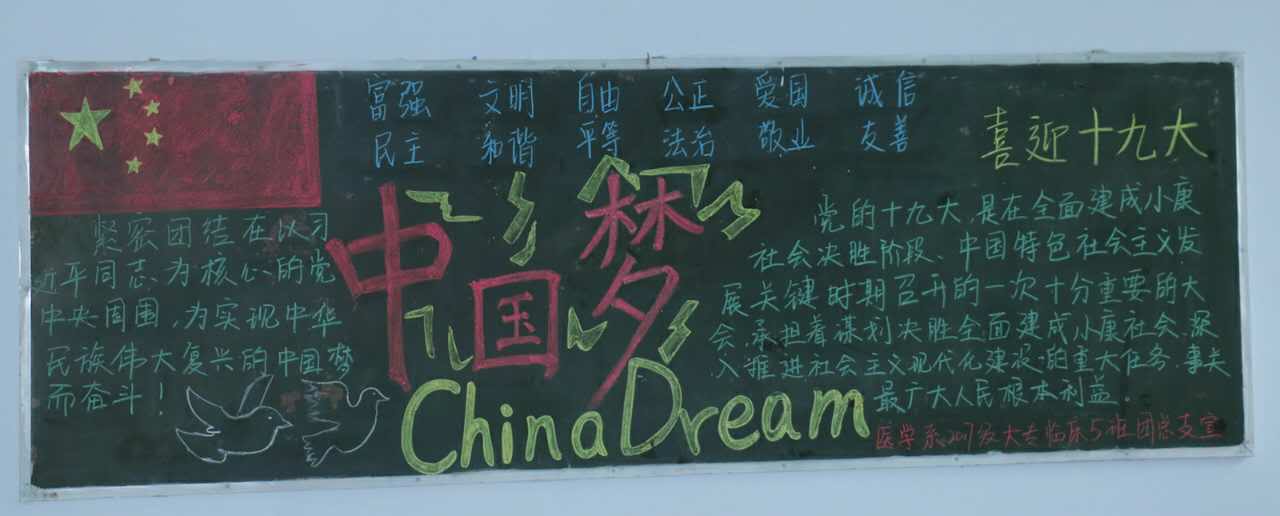 富强 文明 自由 公正 爱国 诚信
民主 和谐 平等 法治 敬业 友善
喜迎十九大
紧密团结在以习
近平同志为核心的党
中央周围,为实现中华
民族伟大复兴的中国梦
而奋斗!
中国梦
China Dream
党的十九大,是在全面建成小康
社会决胜阶段、中国特色社会主义发
展关键时期召开的一次十分重要的大
会,承担着谋划决胜全面建成小康社会、深
入推进社会主义现代化建设的重大任务,事关
最广大人民根本利益。
医学系2017级大专临床5班团总支宣